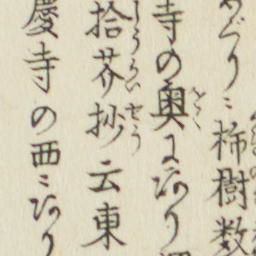 めぐりニ柿樹数
寺の奥にあり
拾芥抄云東
慶寺の西ニあり